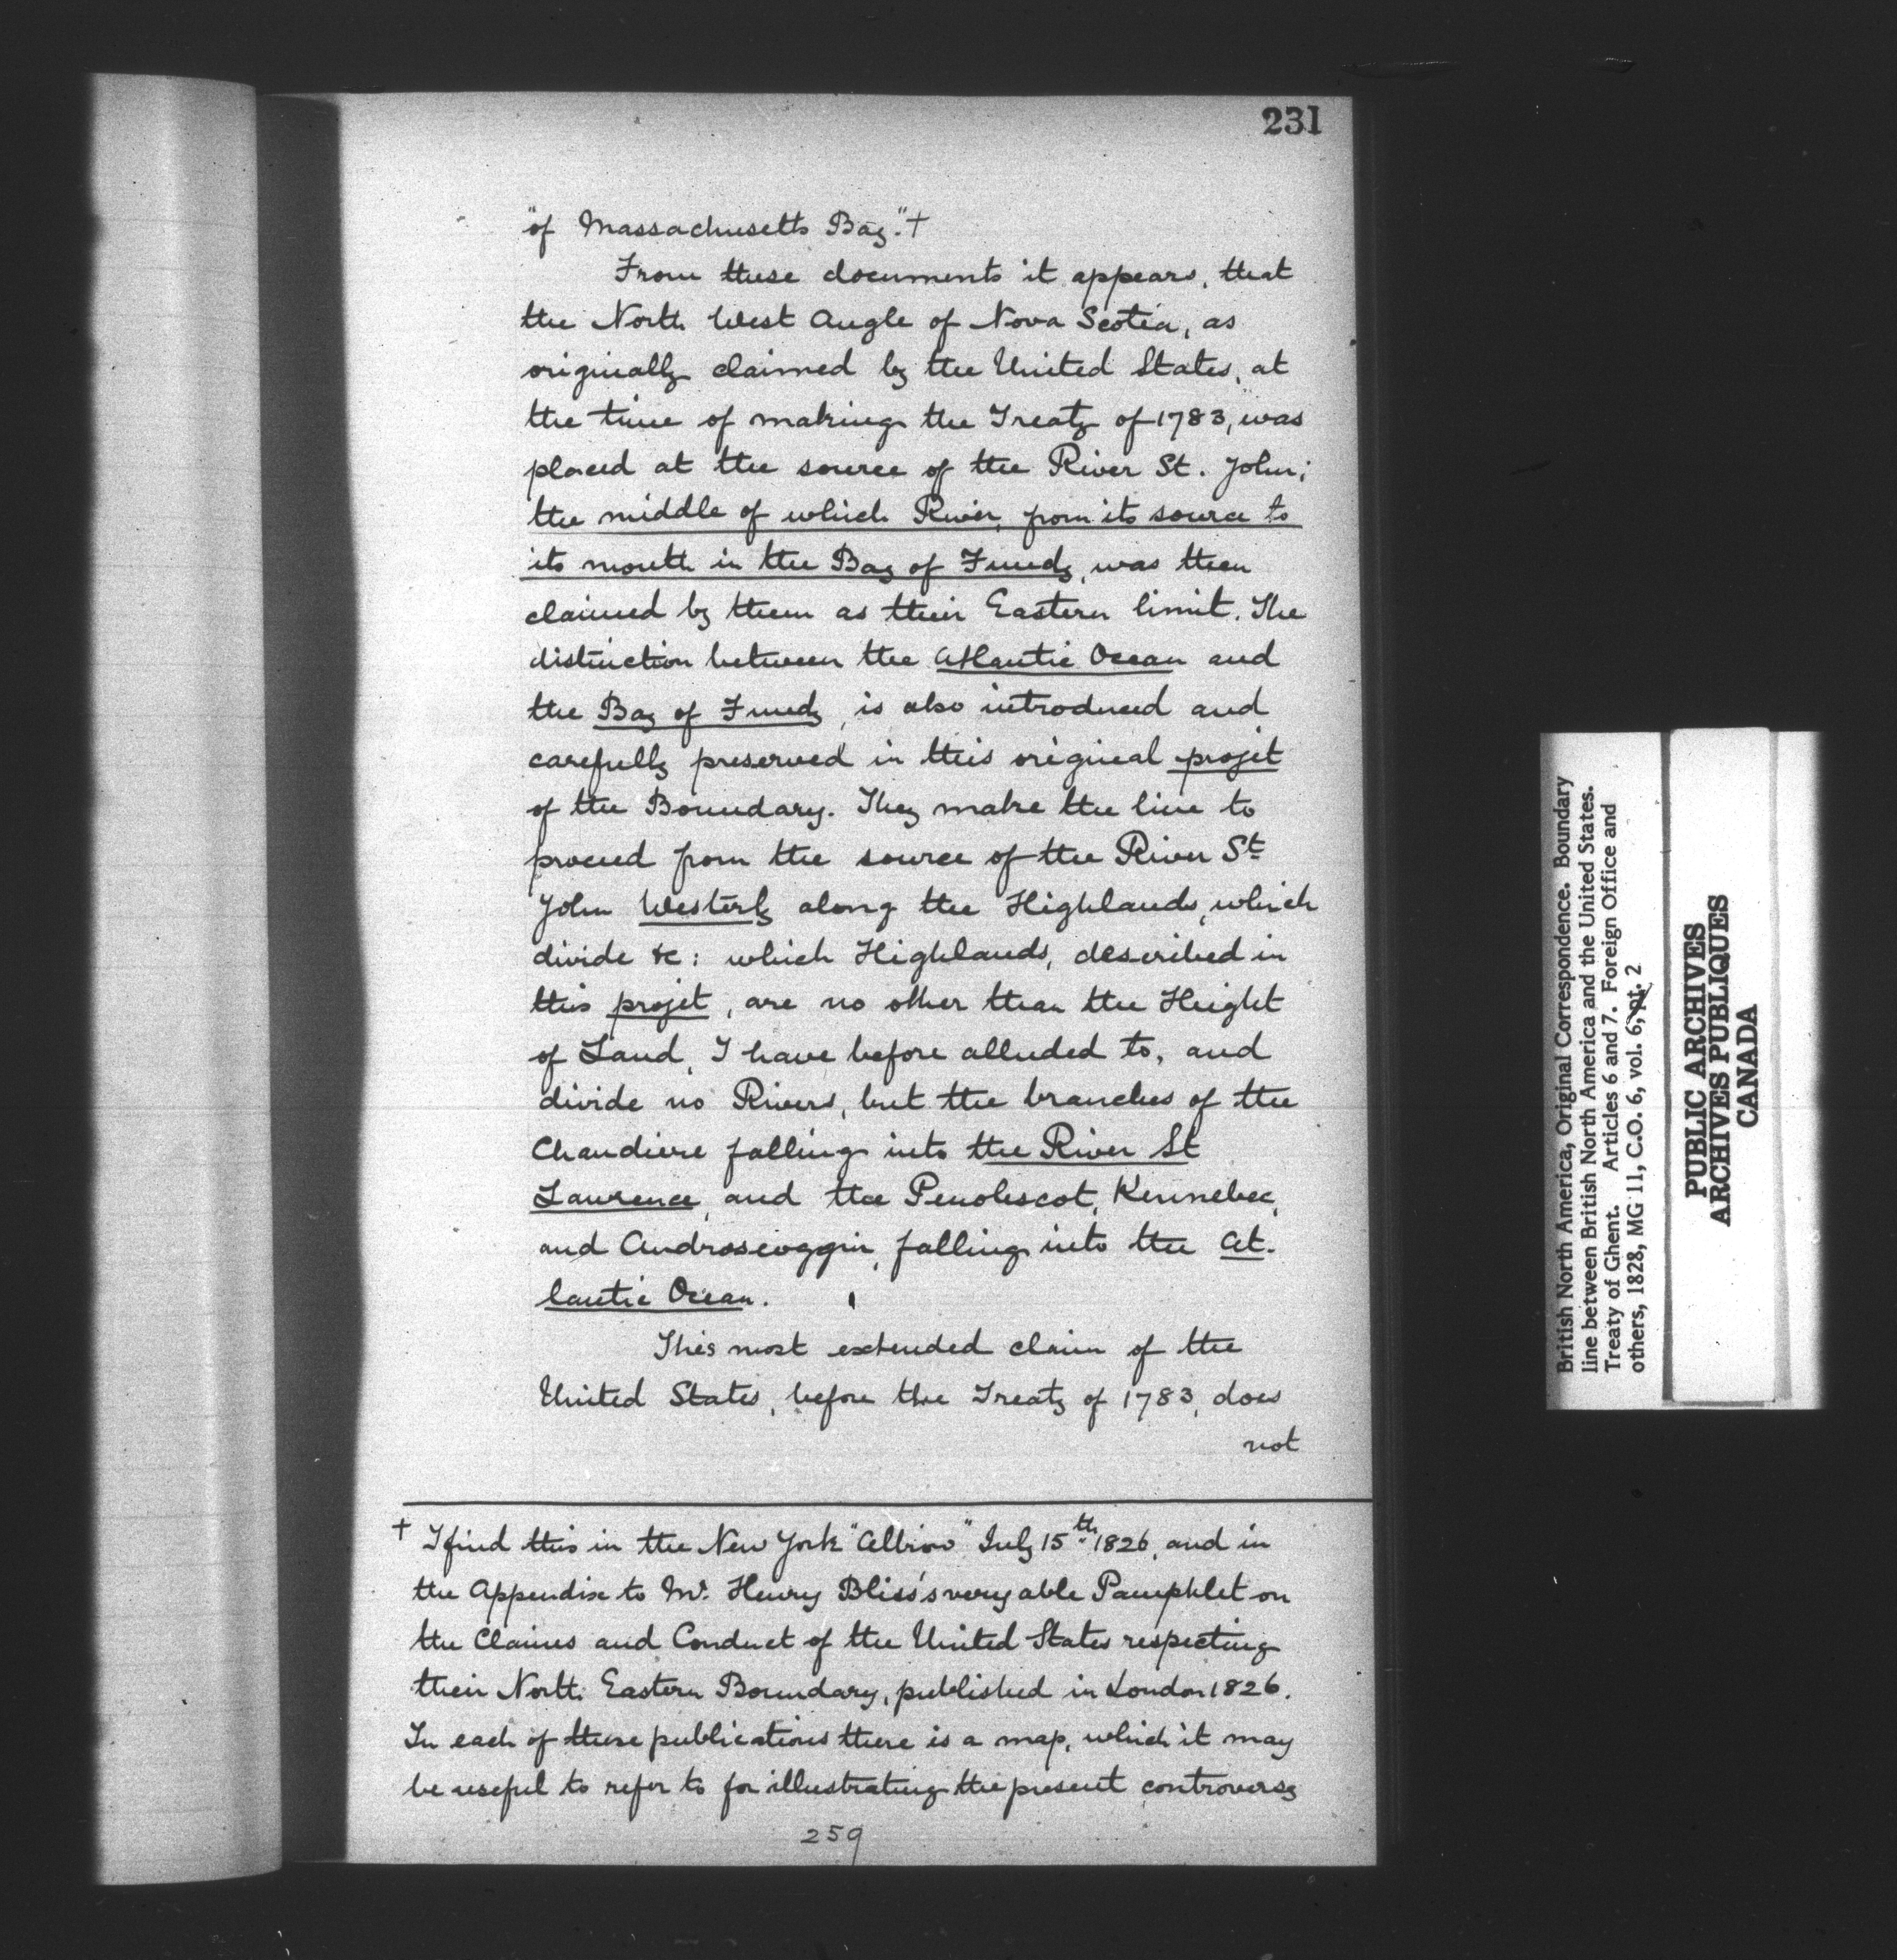 231
"of Massachusetts Bay."†
From these documents it appears, that
the North West Angle of Nova Scotia, as
originally claimed by the United States, at
the time of making the Treaty of 1783, was
placed at the source of the River St. John;
the middle of which River, from its source to
its mouth in the Bay of Fundy, was then
claimed by them as their Eastern limit. The
distinction between the Atlantic Ocean and
the Bay of Fundy, is also introduced and
carefully preserved in this original projet
of the Boundary. They make the line to
proceed from the source of the River St
John Westerly along the Highlands, which
divide &c: which Highlands, described in
this projet, are no other than the Height
of Land, I have before alluded to, and
divide no Rivers, but the branches of the
Chaudiere falling into the River St
Lawrence, and the Penobscot, Kennebec,
and Androscoggin, falling into the At-
lantic Ocean.
This most extended claim of the
United States, before the Treaty of 1783, does
not
† I find this in the New York "Albion" July 15th 1826, and in
the Appendix to Mr. Henry Bliss's very able Pamphlet on
the Claims and Conduct of the United States respecting
their North Eastern Boundary, published in London 1826.
In each of these publications there is a map, which it may
be useful to refer to for illustrating the present controversy
259
British North America, Original Correspondence. Boundary
line between British North America and the United States.
Treaty of Ghent. Articles 6 and 7. Foreign Office and
others, 1828, MG 11, C.O. 6, vol. 6, pt. 2
PUBLIC ARCHIVES
ARCHIVES PUBLIQUES
CANADA